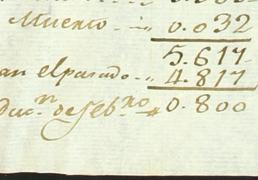 Muerto 0.032
5.617
an el pasado 4.817
ducn de feb.ro 0.800